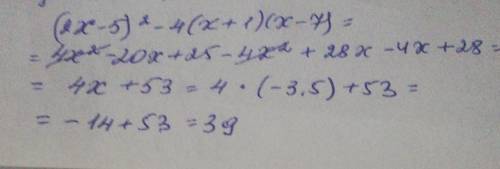 (2x-5)² - 4(x+1)(x-7) =
= 4x² - 20x + 25 - 4x² + 28x - 4x + 28 =
= 4x + 53 = 4 · (-3,5) + 53 =
= -14 + 53 = 39